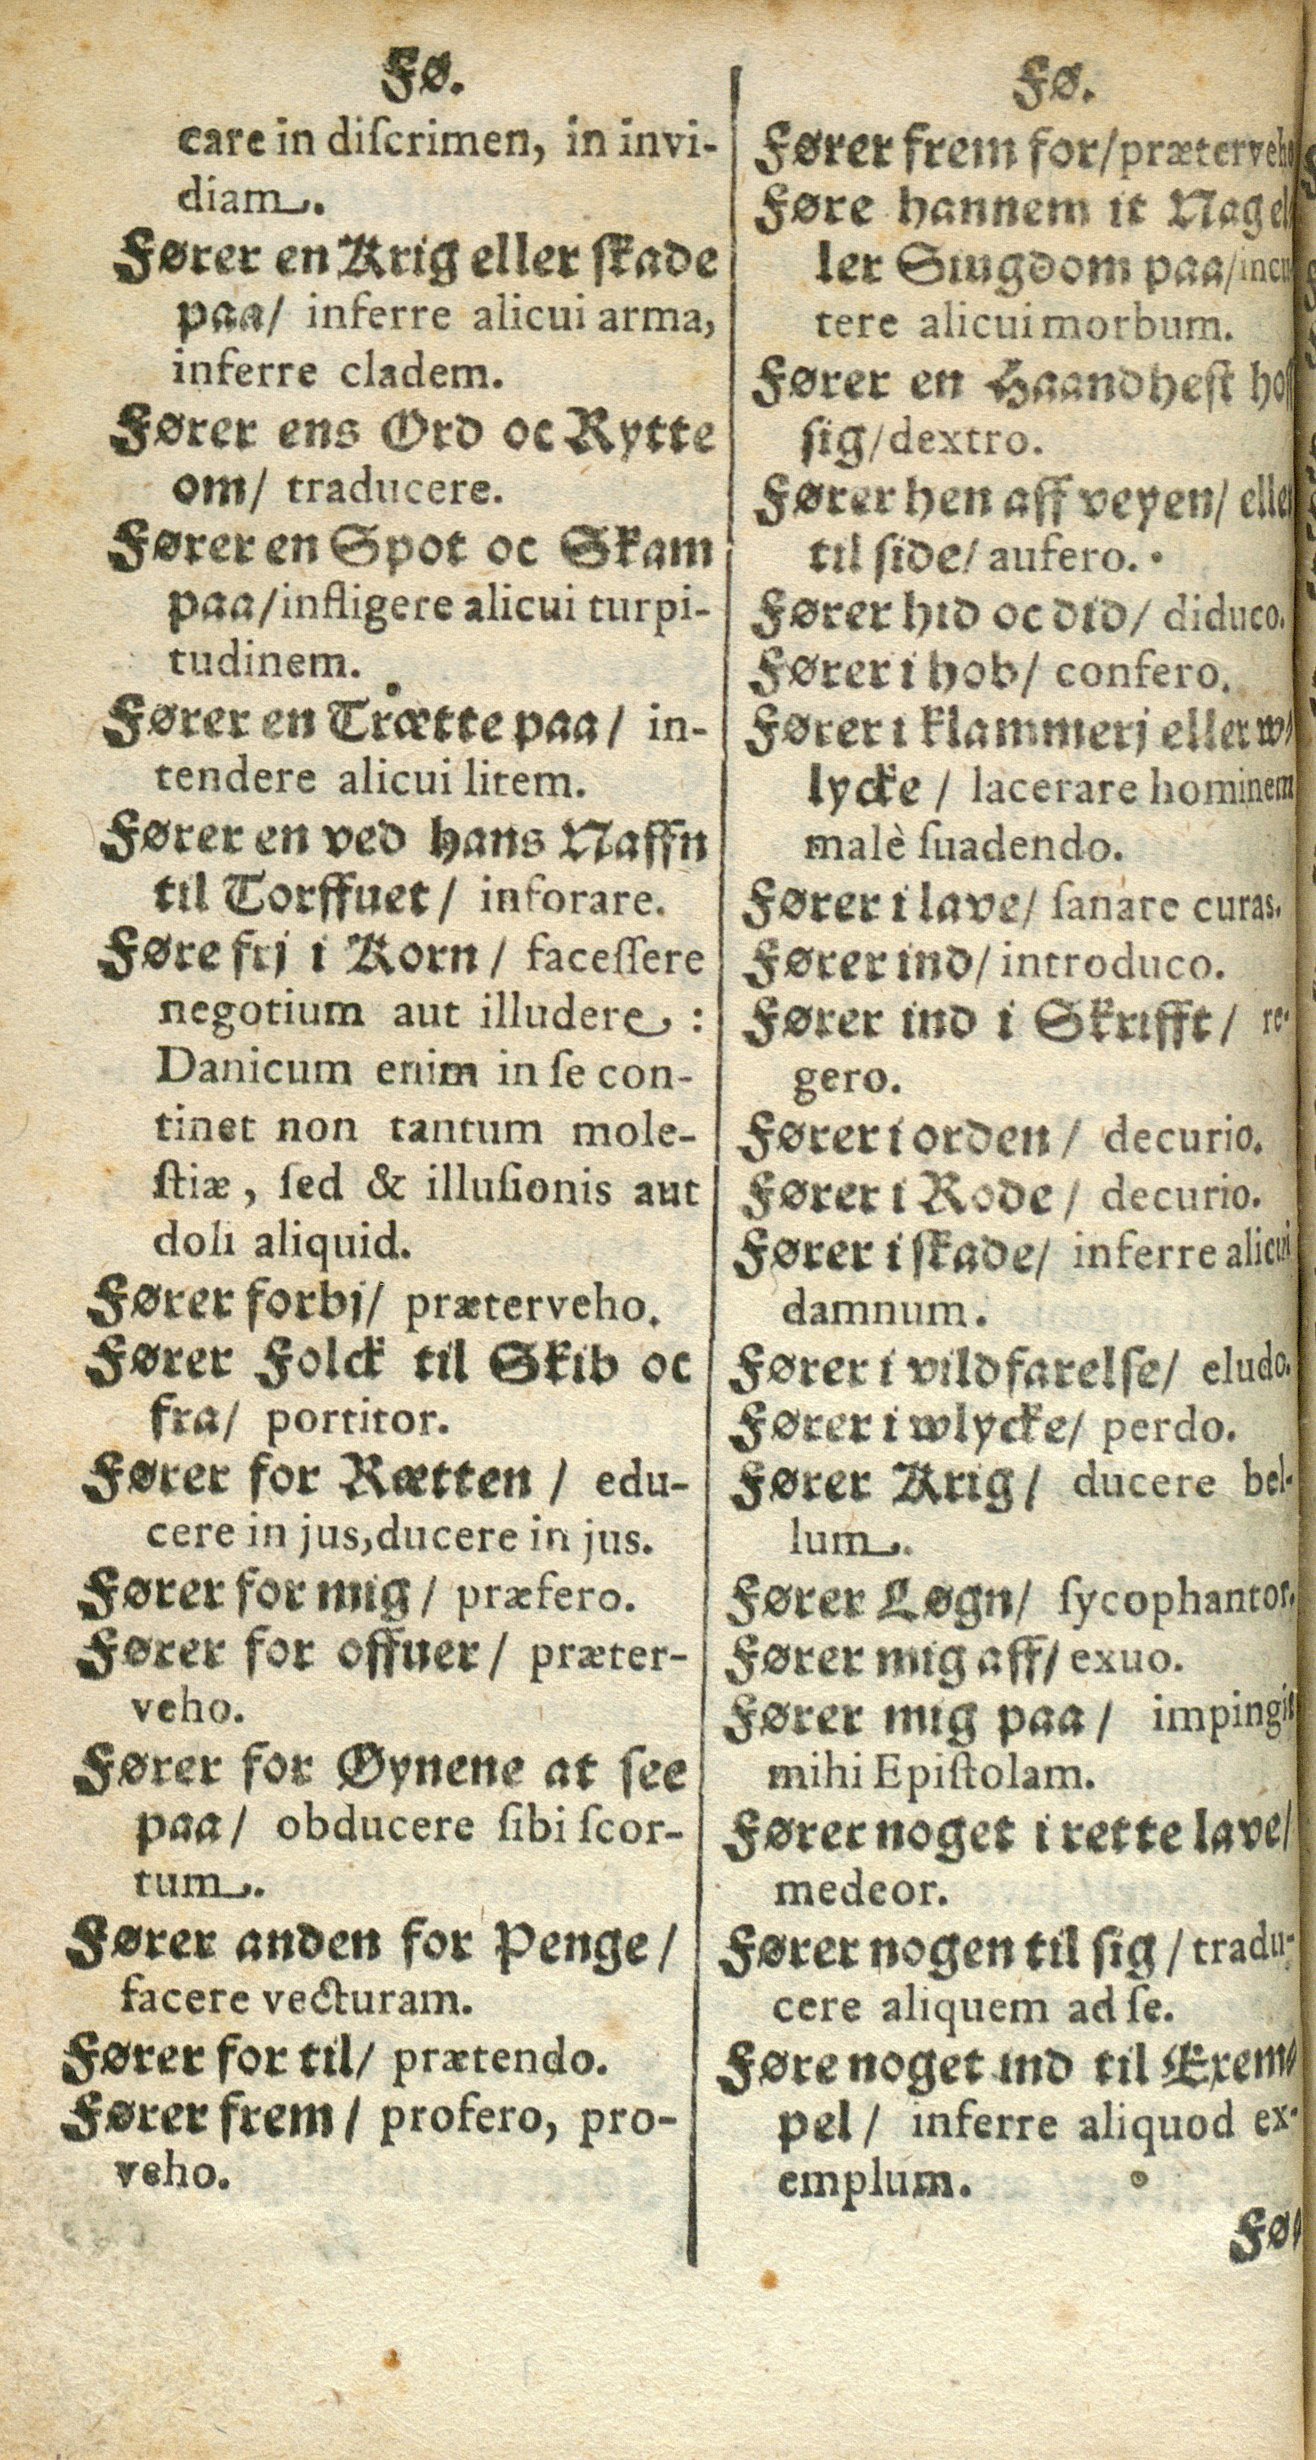 Fø.
care in diſcrimen, in invi-
diam.
Fører en Krig eller ſkade
paa/ inferre alicui arma,
inferre cladem.
Fører ens Ord oc Rytte
om/ traducere.
Fører en Spot oc Skam
paa/infligere alicui turpi-
tudinem.
Fører en Trætte paa/ in-
tendere alicui litem.
Fører en ved hans Naffn
til Torffuet/ inforare.
Føre frj i Korn/ faceſſere
negotium aut illudere :
Danicum enim in ſe con-
tinet non tantum mole-
ſtiæ, ſed & illuſionis aut
doli aliquid.
Fører forbj/ præterveho.
Fører Folck til Skib oc
fra/ portitor.
Fører for Rætten / edu-
cere in jus,ducere in jus.
Fører for mig/ præfero.
Fører for offuer/ præter-
veho.
Fører for Øynene at ſee
paa/ obducere ſibi ſcor-
tum.
Fører anden for Penge/
facere vecturam.
Fører for til/ prætendo.
Fører frem/ profero, pro-
veho.
Fø.
Fører frem for/præterveho
Føre hannem it Nag el/
ler Siugdom paa/incu
tere alicui morbum.
Fører en Haandheſt hoſ
ſig/dextro.
Fører hen aff veyen/ eller
til ſide/ aufero.
Fører hid oc did/ diduco.
Fører i hob/ confero.
Fører i klammerj eller w/
lycke / lacerare hominem
malè ſuadendo.
Fører i lave/ ſanare curas.
Fører ind/ introduco.
Fører ind i Skrifft/ re-
gero.
Fører i orden/ decurio.
Fører i Rode/ decurio.
Fører i ſkade/ inferre alicui
damnum.
Fører i vildfarelſe/ eludo.
Fører i wlycke/ perdo.
Fører Krig/ ducere bel-
lum.
Fører Løgn/ ſycophantor.
Fører mig aff/ exuo.
Fører mig paa/ impingit
mihi Epiſtolam.
Fører noget i rette lave/
medeor.
Fører nogen til ſig/ tradu-
cere aliquem ad ſe.
Føre noget ind til Exem/
pel/ inferre aliquod ex-
emplum.
Fø/